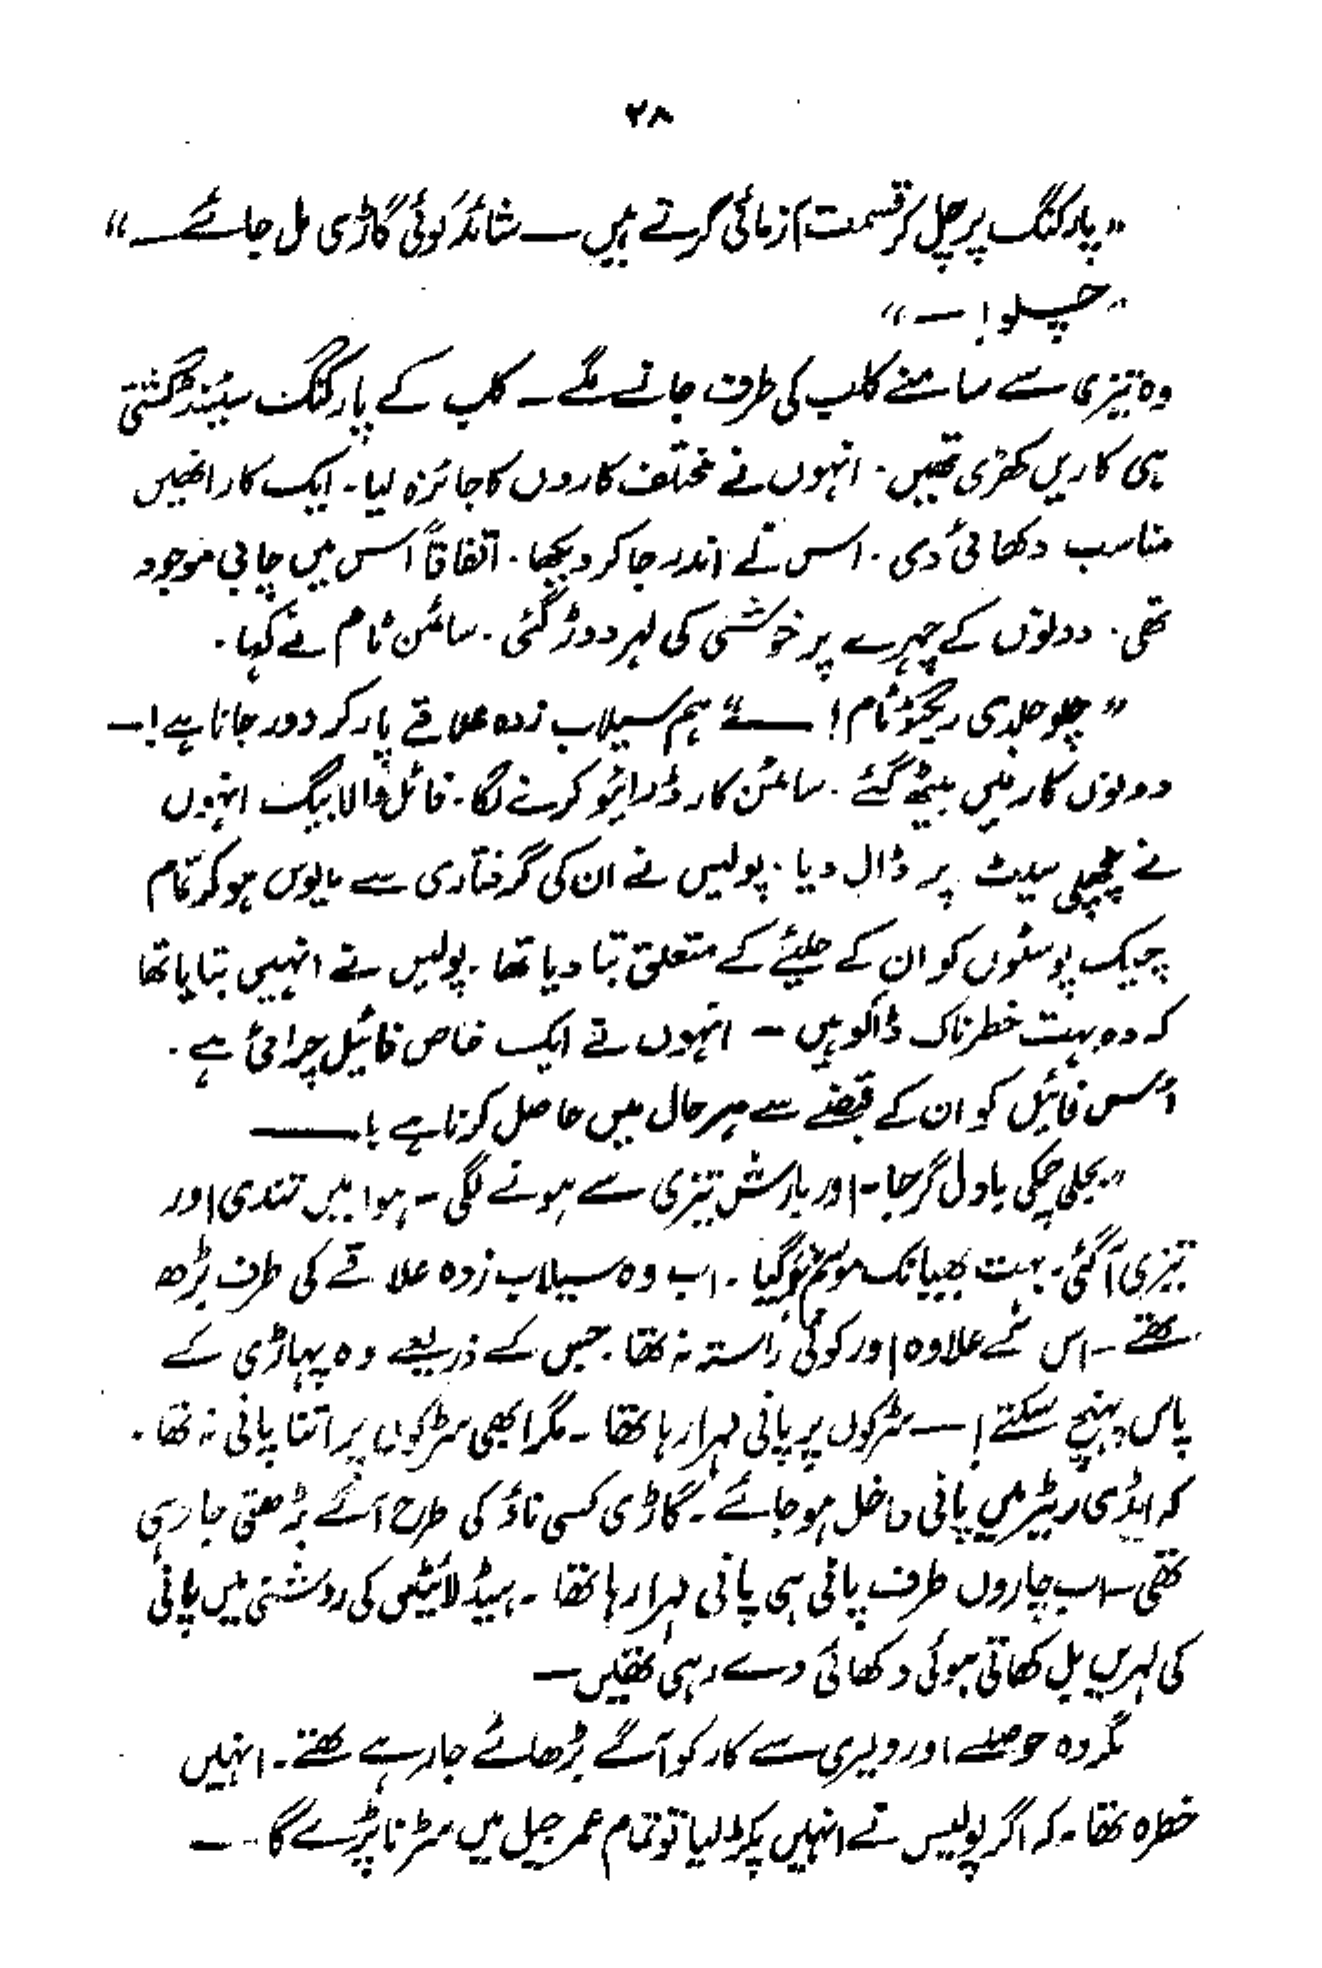 ۲۸
"پارکنگ پر چل کر قسمت آزمائی کرتے ہیں ـــ شائد کوئی گاڑی مل جائے ـــ"
"چلو! ـــ"
وہ تیزی سے سامنے کلب کی طرف جانے لگے ـ کلب کے پارکنگ سٹینڈ کتنی
ہی کاریں کھڑی تھیں۔ انہوں نے مختلف کاروں کا جائزہ لیا۔ ایک کار انھیں
مناسب دکھائی دی۔ اس نے اندر جا کر دیکھا۔ اتفاقاً اس میں چابی موجود
تھی۔ دونوں کے چہرے پر خوشی کی لہر دوڑ گئی۔ سائمن ٹام نے کہا۔
"چلو جلدی ٹام! ـــ" ہم سیلاب زدہ علاقے پار کر دور جانا ہے! ـــ
دونوں کار میں بیٹھ گئے۔ سائمن کار ڈرائیو کرنے لگا۔ فائل والا بیگ انہوں
نے پچھلی سیٹ پر ڈال دیا۔ پولیس نے ان کی گرفتاری سے مایوس ہو کر تمام
چیک پوسٹوں کو ان کے حلیئے کے متعلق بتا دیا تھا۔ پولیس نے انہیں بتایا تھا
کہ وہ بہت خطرناک ڈاکو ہیں ـ انہوں نے ایک خاص فائیل چرائی ہے۔
اُس فائیل کو ان کے قبضے سے ہر حال میں حاصل کرنا ہے! ـــ
"بجلی چمکی بادل گرجا ـ اور بارش تیزی سے ہونے لگی ـ ہوا میں تندی اور
تیزی آ گئی۔ بہت بھیانک موسم ہو گیا ـ اب وہ سیلاب زدہ علاقے کی طرف بڑھ
تھے ـ اس کے علاوہ اور کوئی راستہ نہ تھا۔ جس کے ذریعے وہ پہاڑی کے
پاس پہنچ سکتے! ـــ سڑکوں پر پانی لہرا رہا تھا ـ مگر ابھی سڑکوں پر اتنا پانی نہ تھا۔
کہ ریٹر میں پانی داخل ہو جائے ـ گاڑی کسی ناؤ کی طرح آگے بڑھتی جا رہی
تھی ـ اب چاروں طرف پانی ہی پانی لہرا رہا تھا ـ ہیڈ لائیٹس کی روشنی میں پانی
کی لہریں بل کھاتی ہوئی دکھائی دے رہی تھیں ـ
مگر وہ حوصلے اور دلیری سے کار کو آگے بڑھائے جا رہے تھے۔ انہیں
خطرہ تھا۔ کہ اگر پولیس نے انہیں پکڑ لیا تو تمام عمر جیل میں سڑنا پڑے گا ـــ